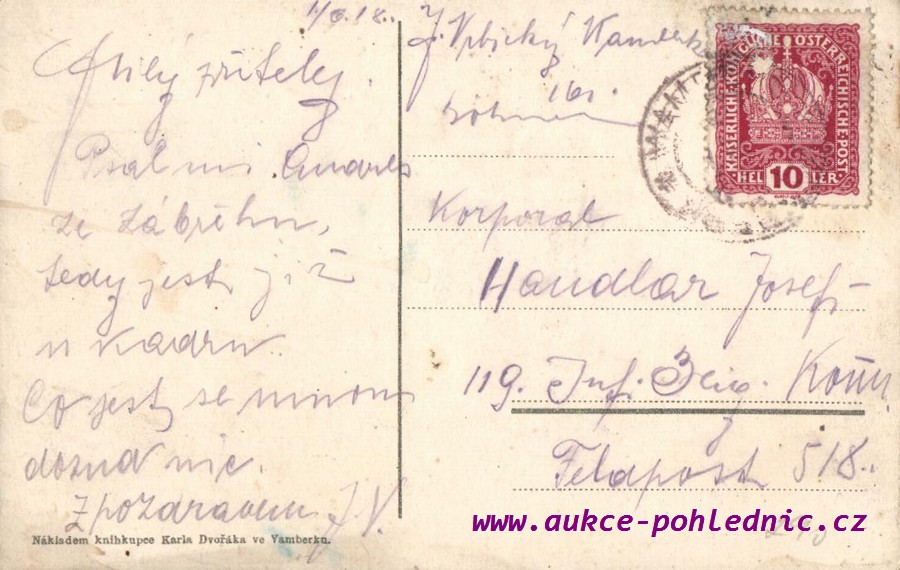 1/6.18.
Milý příteli!
Psal mi Andres
ze Zábřehu,
tedy jest již
u kadru.
Co jest se mnou
dosud nic.
Z pozdravem J. V.
Nákladem knihkupce Karla Dvořáka ve Vamberku.
J. Vrbický
KAISERLICHE KÖNIGLICHE ÖSTERREICHISCHE POST
HELLER
10
Korporal
Handlar Josef
119. Inf. Brig. Kom.
Feldpost 518.
www.aukce-pohlednic.cz